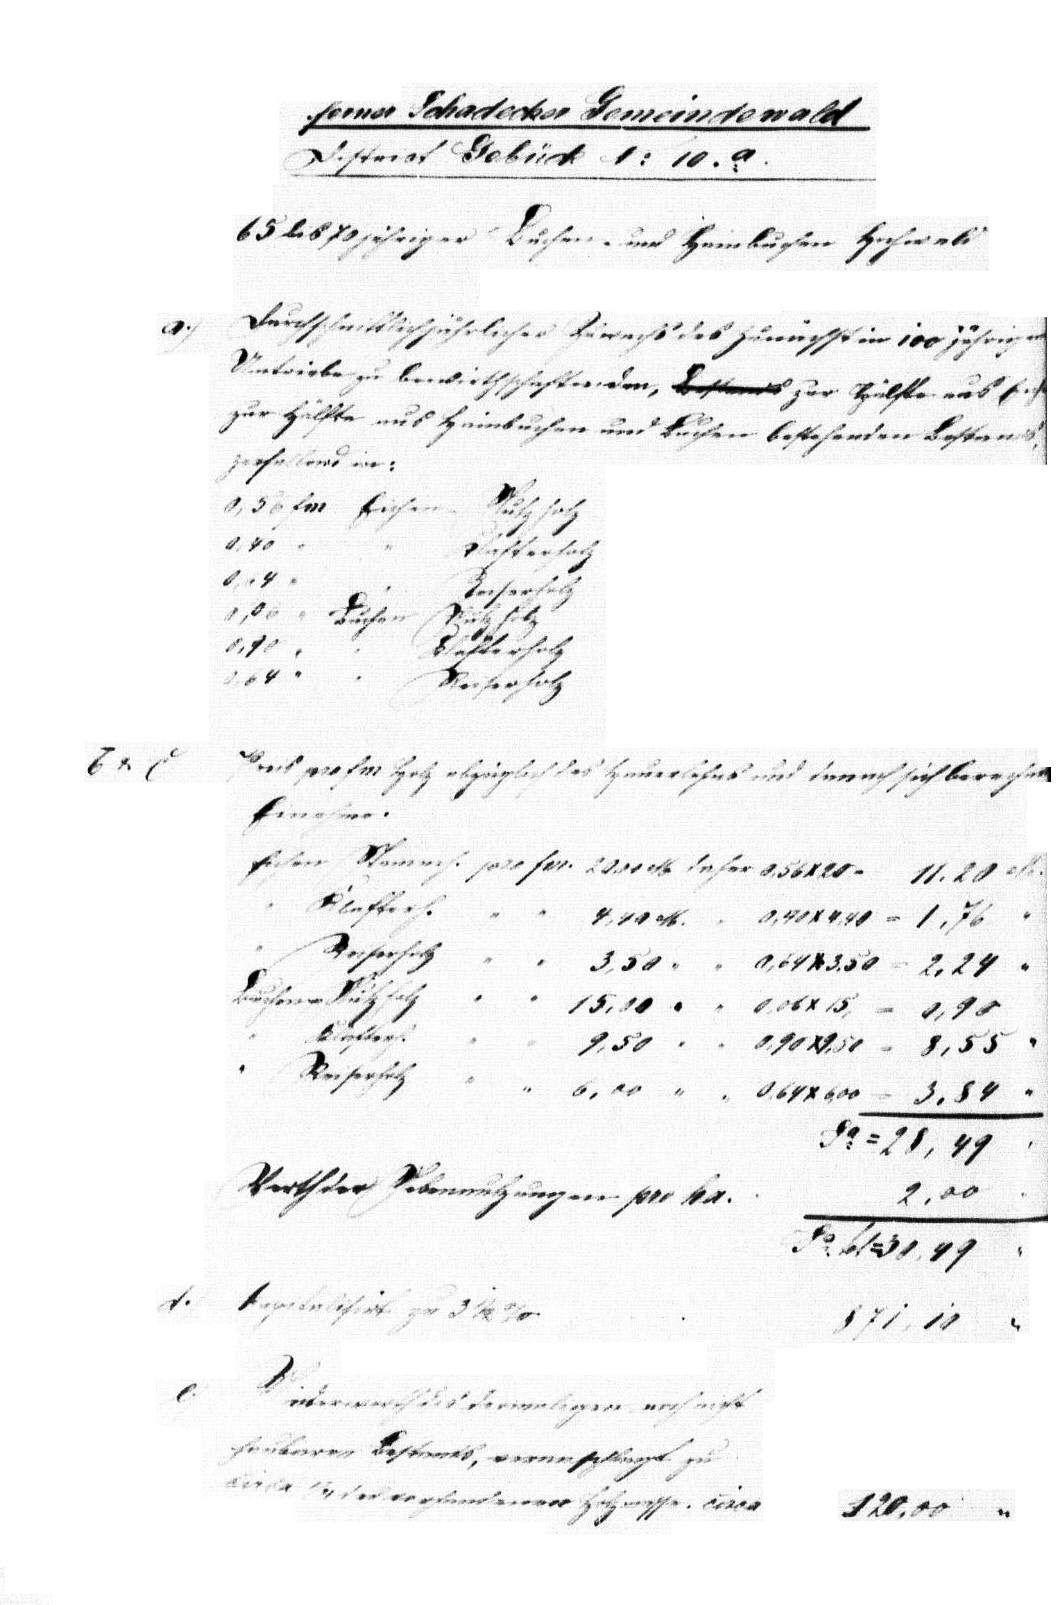 ferner Schadecker Gemeindewald
District Gebück 1: 10. a.
65 bis 70 jähriger Buchen- und Hainbuchen Hochwald
a.) Durchschnittlich jährlicher Zuwachs des zunächst in 100 jährigem
Umtriebe zu bewirthschaftenden, Bestands zur Hälfte aus Eichen
zur Hälfte aus Hainbuchen und Buchen bestehenden Bestands,
zerfallend in:
0,56 fm Eichen Nutzholz
0,40 " " Klafterholz
0,64 " " Reiserholz
0,06 " Buchen Nutzholz
0,90 " " Klafterholz
0,64 " " Reiserholz
b & c Preis pro fm Holz abzüglich des Hauerlohns und danach sich berechnende
Einnahme.
Eichen Stammh. pro fm. 20,00 M daher 0,56 x 20 = 11.20 M.
" Klafterh. " " 4,40 M. " 0,40 x 4,40 = 1,76 "
" Reiserholz " " 3,50 " " 0,64 x 3.50 = 2,24 "
Buchen Nutzholz " " 15,00 " " 0,06 x 15, = 0,90
" Klafterh. " " 9,50 " " 0,90 x 9,50 = 8,55 "
" Reiserholz " " 6,00 " " 0,64 x 6,00 = 3,84 "
Sa = 28,49 "
Werth der Nebennutzungen pro ha. 2,00 "
Sa. = 30,49 "
d. Kapitalisirt zu 3 ½ % 871,10 "
e. des dermaligen noch nicht
haubaren Bestands, veranschlagt zu
circa der vorhandenen Holzmasse. circa 120,00 "